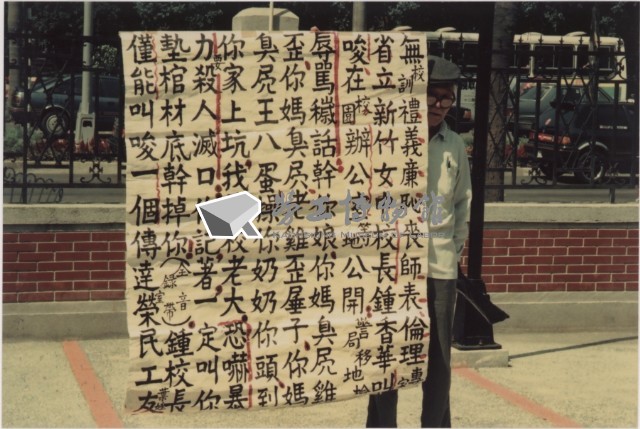 無校訓禮義廉恥喪師表倫理
省立新竹女校長鍾香華叫
唆在校園辦公地公開警局移地
辱罵穢話幹你娘你媽臭屄雞
歪你媽臭屄老雞歪屘子你媽
臭屄王八蛋你奶奶你頭到
你家上坑我校老大恐嚇暴
力殺人滅口記著一定叫你
墊棺材底幹掉你(全錄音帶)鍾校長
僅能叫唆一個傳達榮民工友